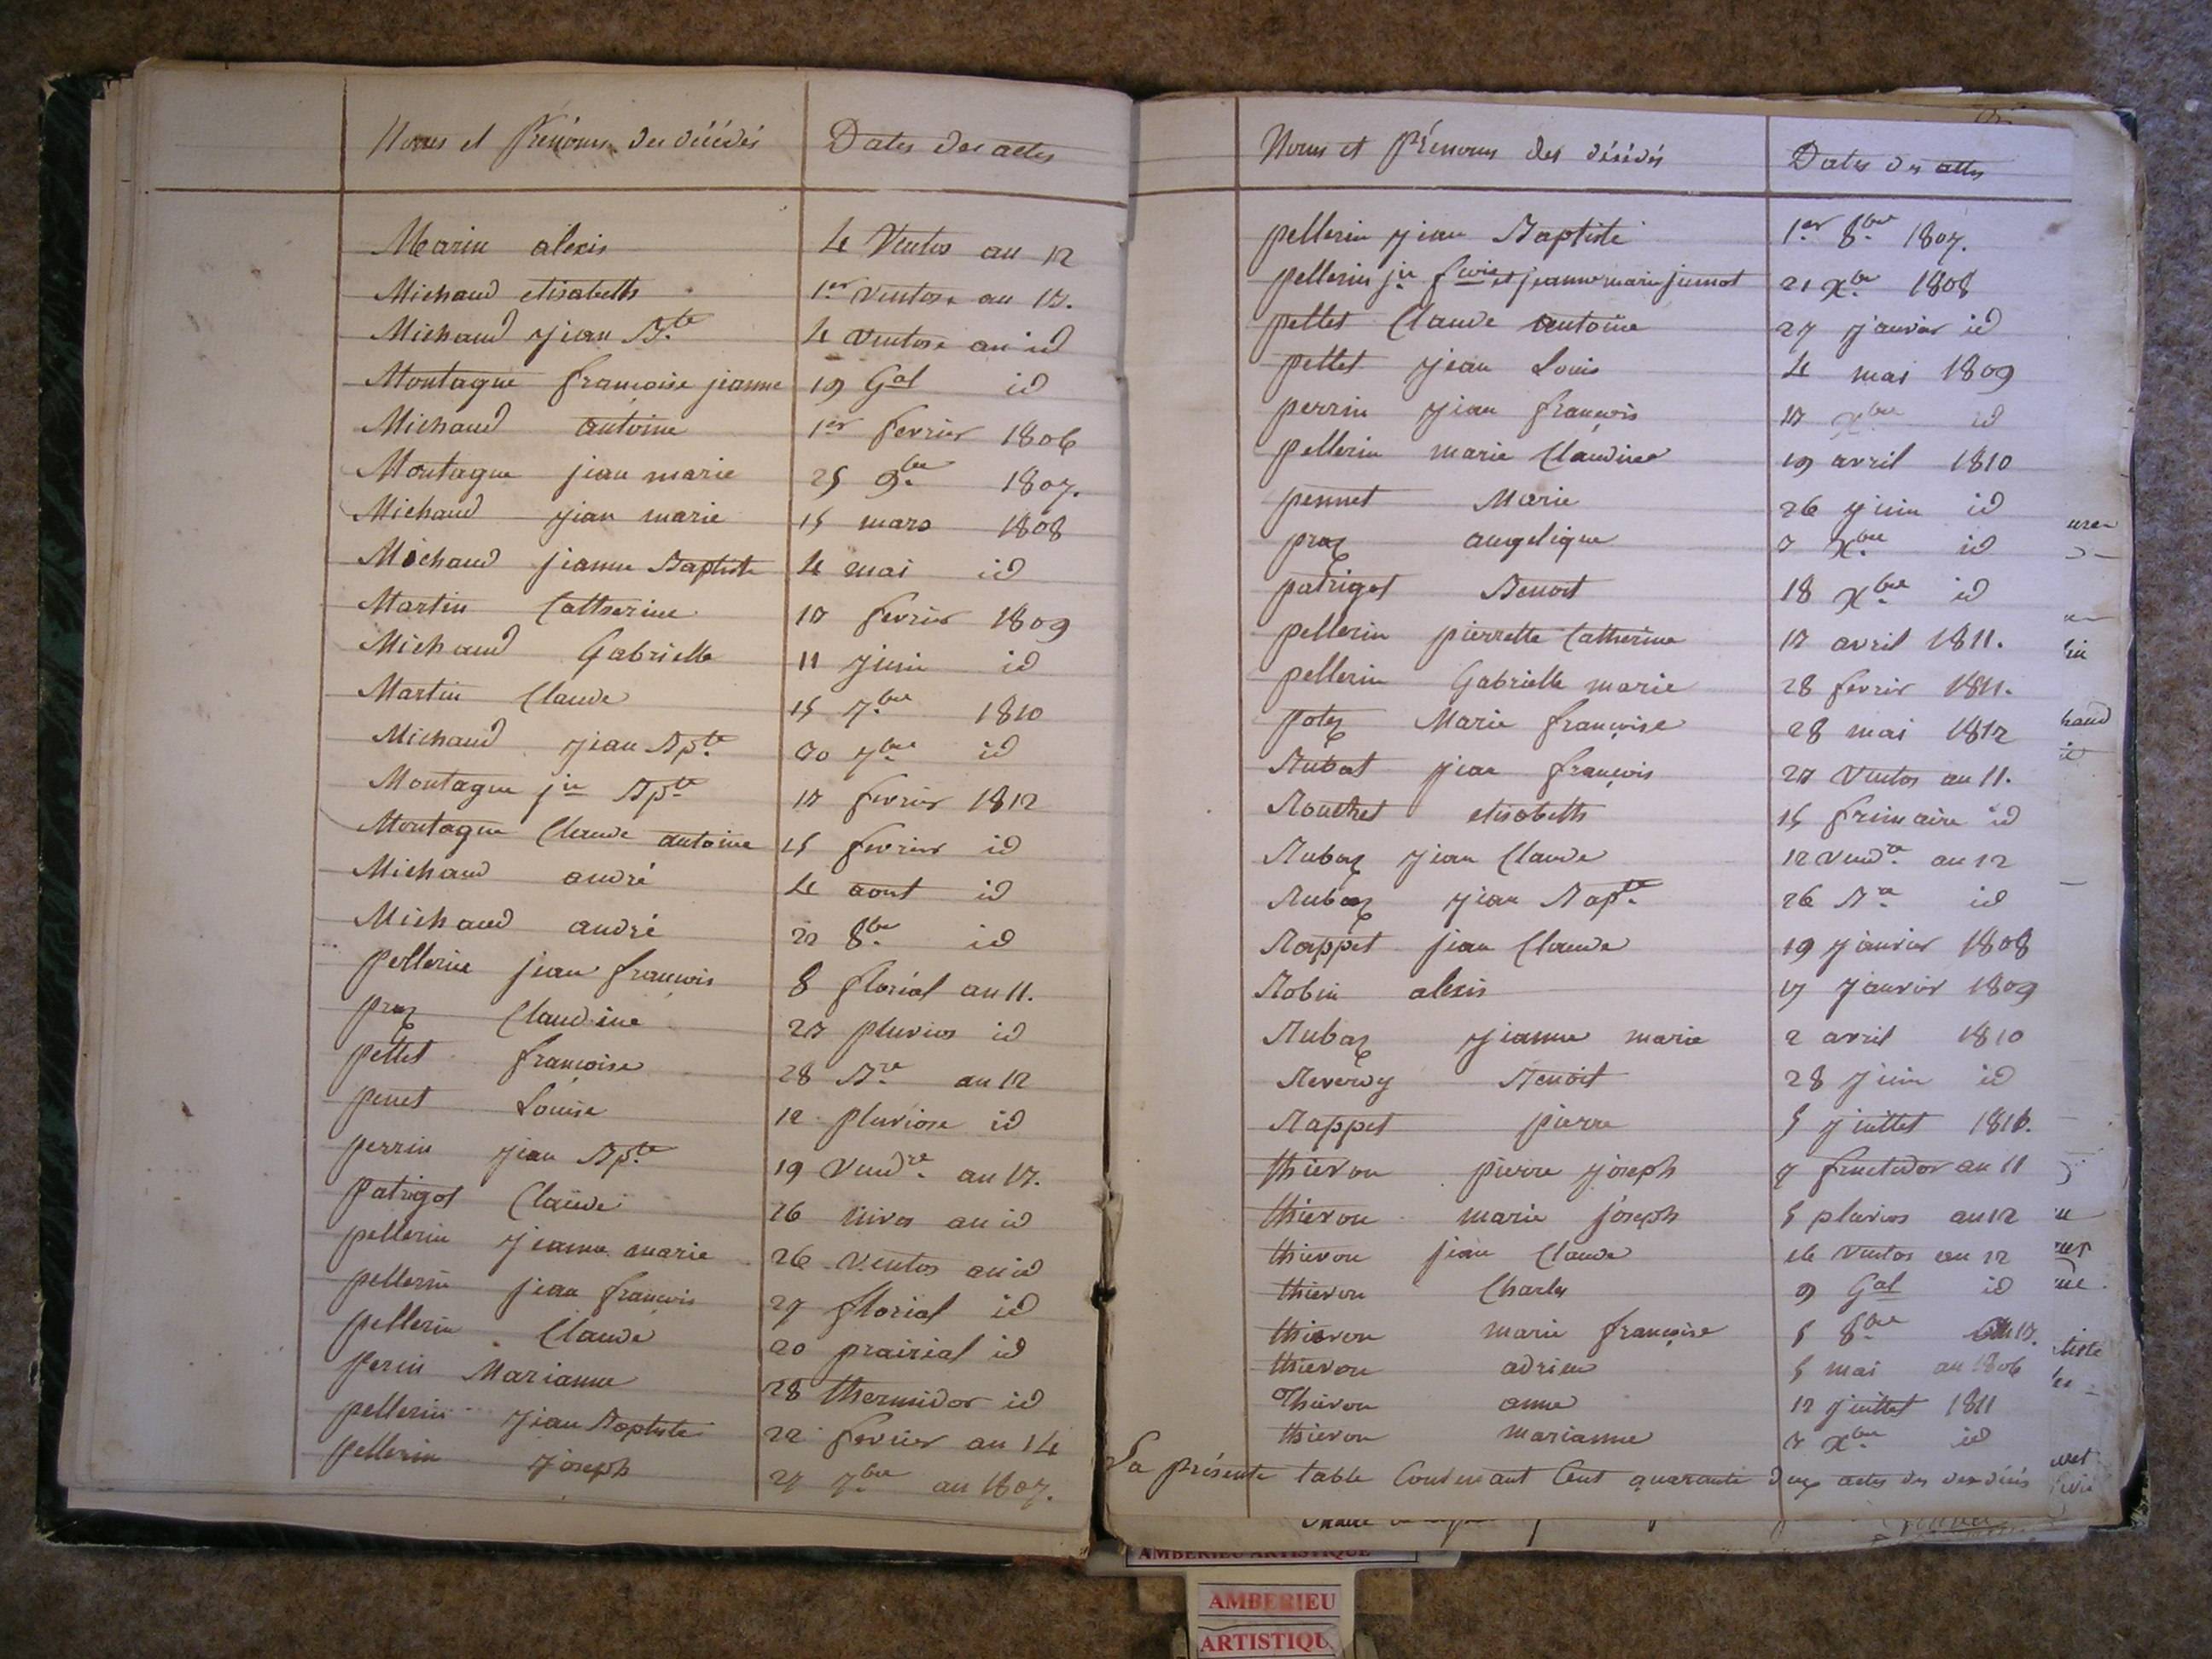 Noms et Prénoms des décédés Dates des actes
Marin alexis 4 Ventos an 12
Michaud elisabeth 1er Ventose an 13.
Michaud jean Bte 4 Ventose an id
Montagne françoise jeanne 19 Gal id
Michaud antoine 1er fevrier 1806
Montagne jean marie 25 9bre 1807.
Michaud jean marie 15 mars 1808
Michaud jeanne Baptiste 4 mai id
Martin Catherine 13 fevrier 1809
Michaud Gabrielle 11 juin id
Martin Claude 15 7bre 1810
Michaud jean Bpte 30 7bre id
Montagne jn Bpte 13 fevrier 1812
Montagne Claude antoine 15 fevrier id
Michaud andré 4 aout id
Michaud andré 22 8bre id
pellerin jean françois 8 floréal an 11.
praz Claudine 23 pluvios id
pellet françoise 28 Bre an 12
penet Louise 12 pluviose id
perrin jean Bpte 19 Vendre an 13.
patrigot Claude 26 nivos an id
pellerin jeanne marie 26 Ventos an id
pellerin jean françois 27 floréal id
pellerin Claude 20 prairial id
perin Marianne 28 thermidor id
pellerin jean Baptiste 22 fevrier an 14
pellerin joseph 27 7bre an 1807.
Noms et Prénoms des décédés Dates des actes
pellerin jean Baptiste 1er 8bre 1807.
pellerin jn et jeanne marie jumot 21 Xbre 1808
pellet Claude antoine 27 janvier id
pellet jean Louis 4 mai 1809
perrin jean françois 13 Xbre id
pellerin marie Claudine 19 avril 1810
pennet Marie 26 juin id
praz angelique 3 Xbre id
patrigot Benoit 18 Xbre id
pellerin pierrette Catherine 13 avril 1811.
pellerin Gabrielle marie 28 fevrier 1811.
potez Marie françoise 28 mai 1812
Rubat jean françois 23 Ventos an 11.
Rouchet elisabeth 15 frimaire id
Rubaz jean Claude 12 Vendre an 12
Rubaz jean Bapte 26 Bre id
Rappet jean Claude 19 janvier 1808
Robin alexis 17 janvier 1809
Rubaz jeanne marie 2 avril 1810
Reverdy Benoit 28 juin id
Rappet pierre 5 juillet 1810.
thievon pierre joseph 7 fructidor an 11
thievon marie joseph 5 pluvios an 12
thievon jean Claude 16 Ventos an 12
thievon Charles 9 Gal id
thievon marie françoise 5 8bre an 13.
thievon adrien 5 mai an 1806
Thievon anne 12 juillet 1811
thievon marianne 3 Xbre id
La présente table Contenant Cent quarante deux actes des décédés
AMBERIEU ARTISTIQUE
AMBERIEU
ARTISTIQU